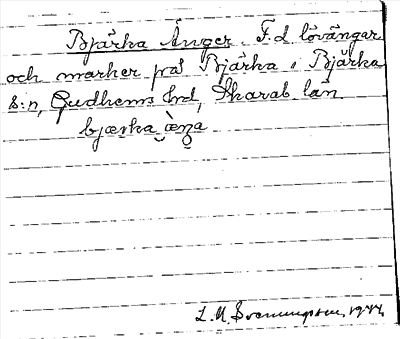 Bjärka Ånger. F.d. lövängar
och marker på Bjärka, Bjärka
s:n, Gudhems hd, Skarab. län.
bjærka æŋa
L. M. Svenungsson, 1944.